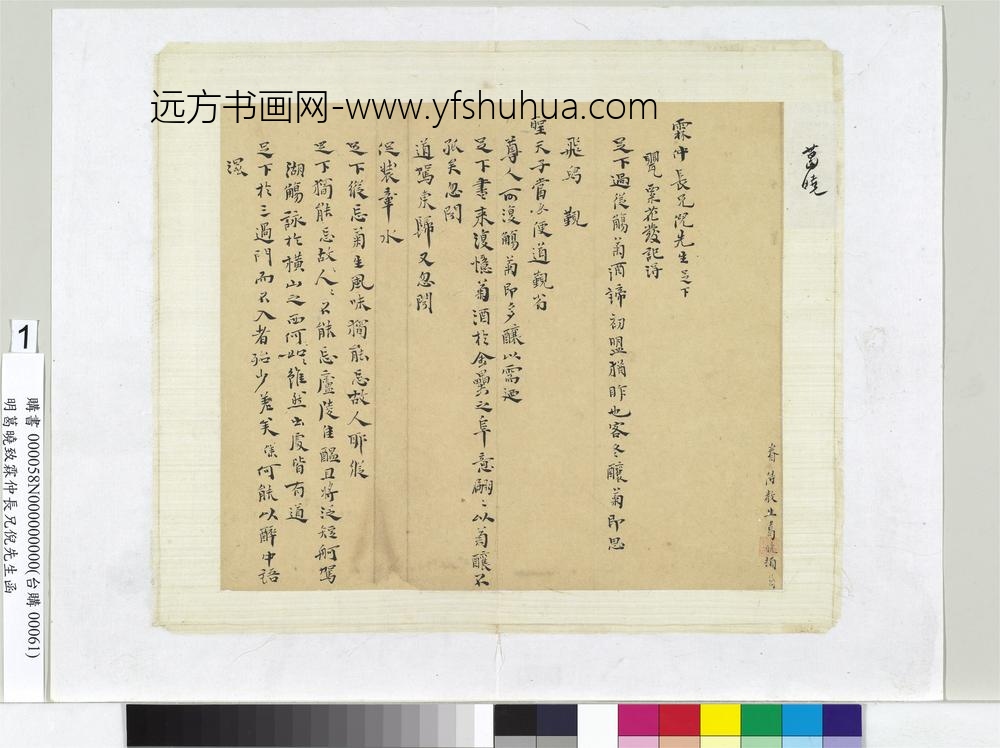 远方书画网-www.yfshuhua.com
葛曉
眷侍教生葛曉頓首
霖仲長兄倪先生足下
罌粟花發記得
足下過從觴菊酒諦初盟猶昨也客冬釀菊即思
飛舄 覲
聖天子當必便道覲省
尊人可復觴菊即多釀以需迺
足下書來復憶菊酒於金罍之阜意翩〻以菊釀不
孤矣忽聞
道駕東歸又忽聞
促裝章水
足下縱忘菊生風味獨能忘故人耶縱
足下獨能忘故人〻不能忘廬陵佳醞且將泛短舸駕
湖觴詠於橫山之西何如〻雖然出處皆有道
足下於三過門而不入者殆少差矣條何能以醉中語
溷
1
購書 000058N000000000(台購 00061)
明葛曉致霖仲長兄倪先生函